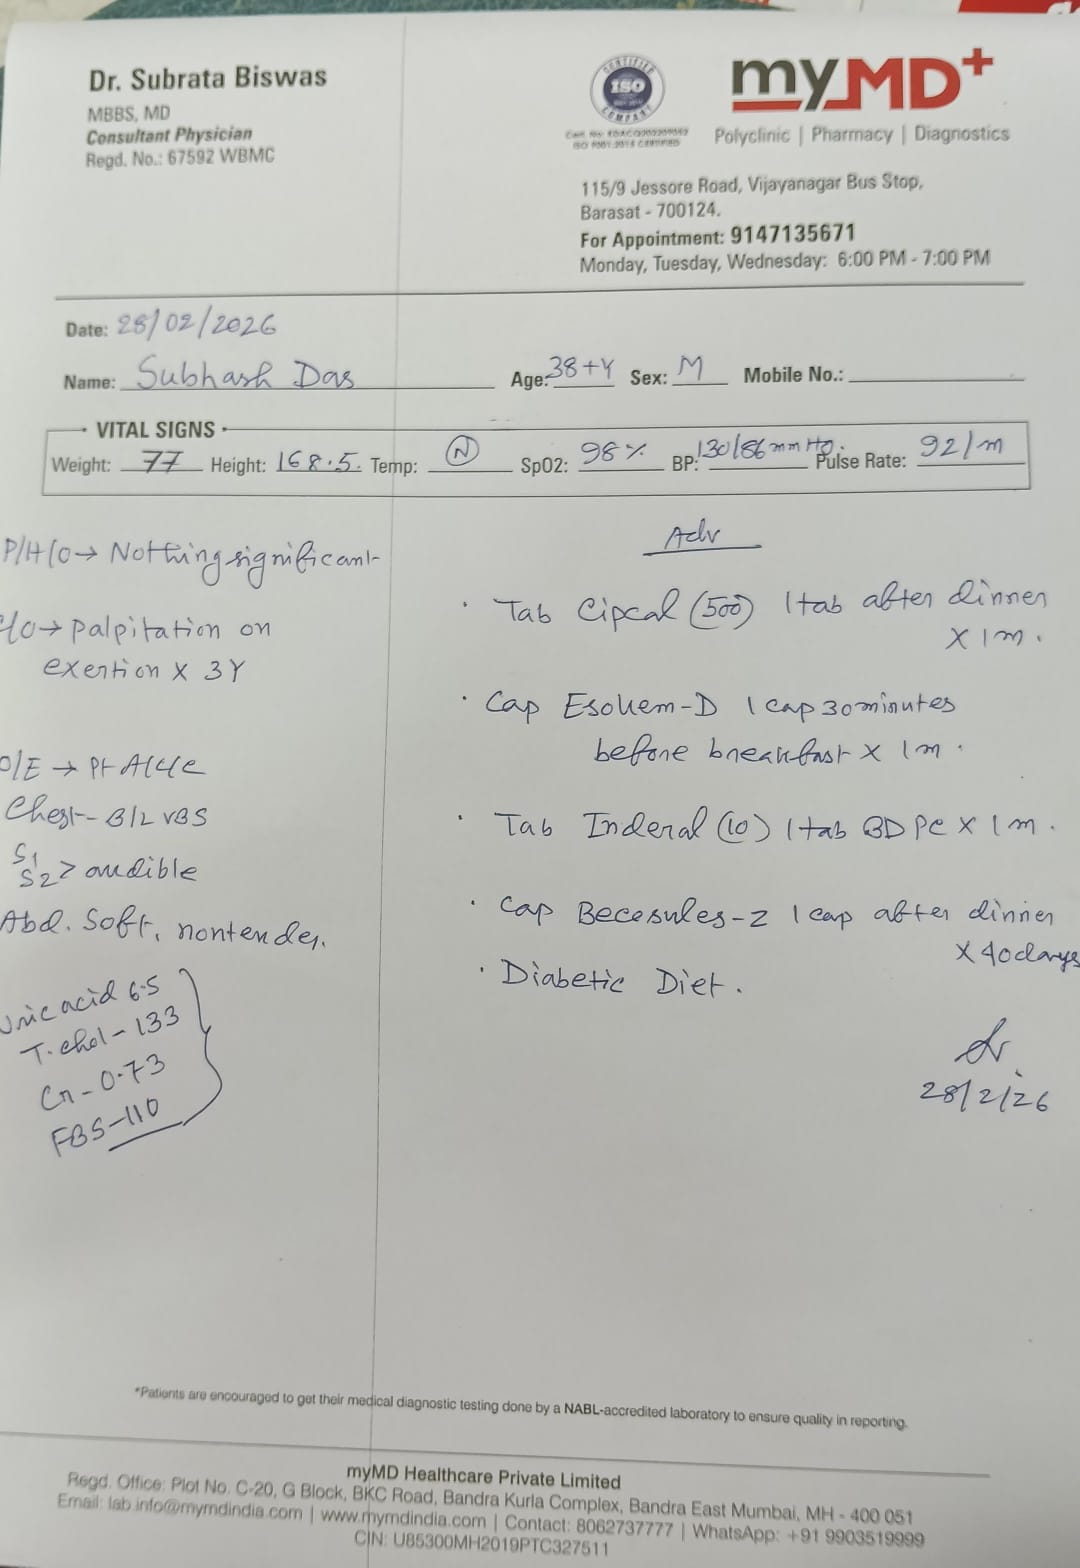 Dr. Subrata Biswas
MBBS, MD
Consultant Physician
Regd. No.: 67592 WBMC
CERTIFIED
ISO
COMPANY
ISO 9001:2015 CERTIFIED
myMD+
Polyclinic | Pharmacy | Diagnostics
115/9 Jessore Road, Vijayanagar Bus Stop,
Barasat - 700124.
For Appointment: 9147135671
Monday, Tuesday, Wednesday: 6:00 PM - 7:00 PM
Date: 28/02/2026
Name: Subhash Das Age: 38+Y Sex: M Mobile No.:
VITAL SIGNS
Weight: 77 Height: 168.5. Temp: N SpO2: 98% BP: 130/86 mmHg. Pulse Rate: 92/m
P/H/O→ Nothing significant
/o→ palpitation on
exertion x 3Y
O/E → Pt
Chest- B/L VBS
S1
S2 > audible
Abd. Soft, nontender.
Uric acid 6.5
T. chol - 133
Cr - 0.73
FBS - 110
Adv
· Tab Cipcal (500) 1 tab after dinner
x 1m.
· Cap Esokem-D 1 cap 30 minutes
before breakfast x 1m.
· Tab Inderal (10) 1 tab BD PC x 1m.
· Cap Becosules-Z 1 cap after dinner
x 40 days
· Diabetic Diet.
28/2/26
*Patients are encouraged to get their medical diagnostic testing done by a NABL-accredited laboratory to ensure quality in reporting.
myMD Healthcare Private Limited
Regd. Office: Plot No. C-20, G Block, BKC Road, Bandra Kurla Complex, Bandra East Mumbai, MH - 400 051
Email: lab.info@mymdindia.com | www.mymdindia.com | Contact: 8062737777 | WhatsApp: +91 9903519999
CIN: U85300MH2019PTC327511